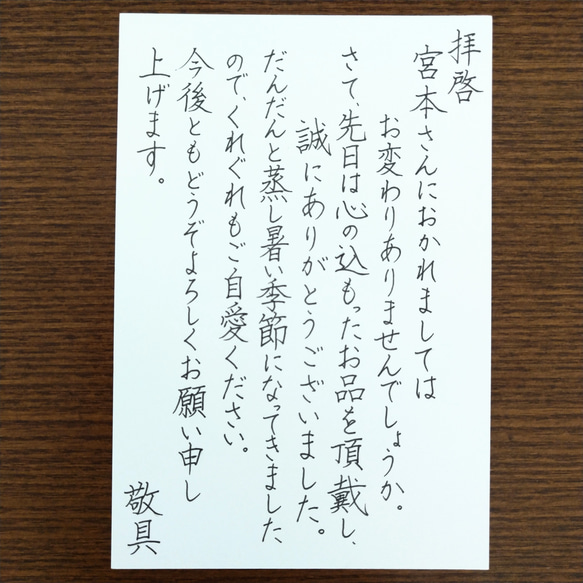 拝啓
宮本さんにおかれましては
お変わりありませんでしょうか。
さて、先日は心の込もったお品を頂戴し、
誠にありがとうございました。
だんだんと蒸し暑い季節になってきました
ので、くれぐれもご自愛ください。
今後ともどうぞよろしくお願い申し
上げます。
敬具